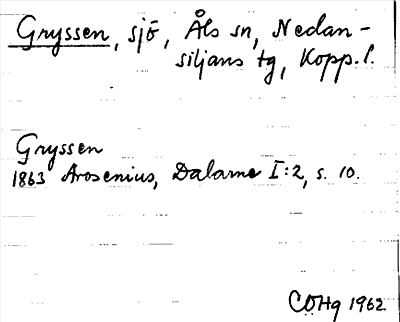 Gryssen, sjö, Åls sn, Nedan-
siljans tg, Kopp. l.
Gryssen
1863 Arosenius, Dalarne I:2, s. 10.
CÖHg 1962